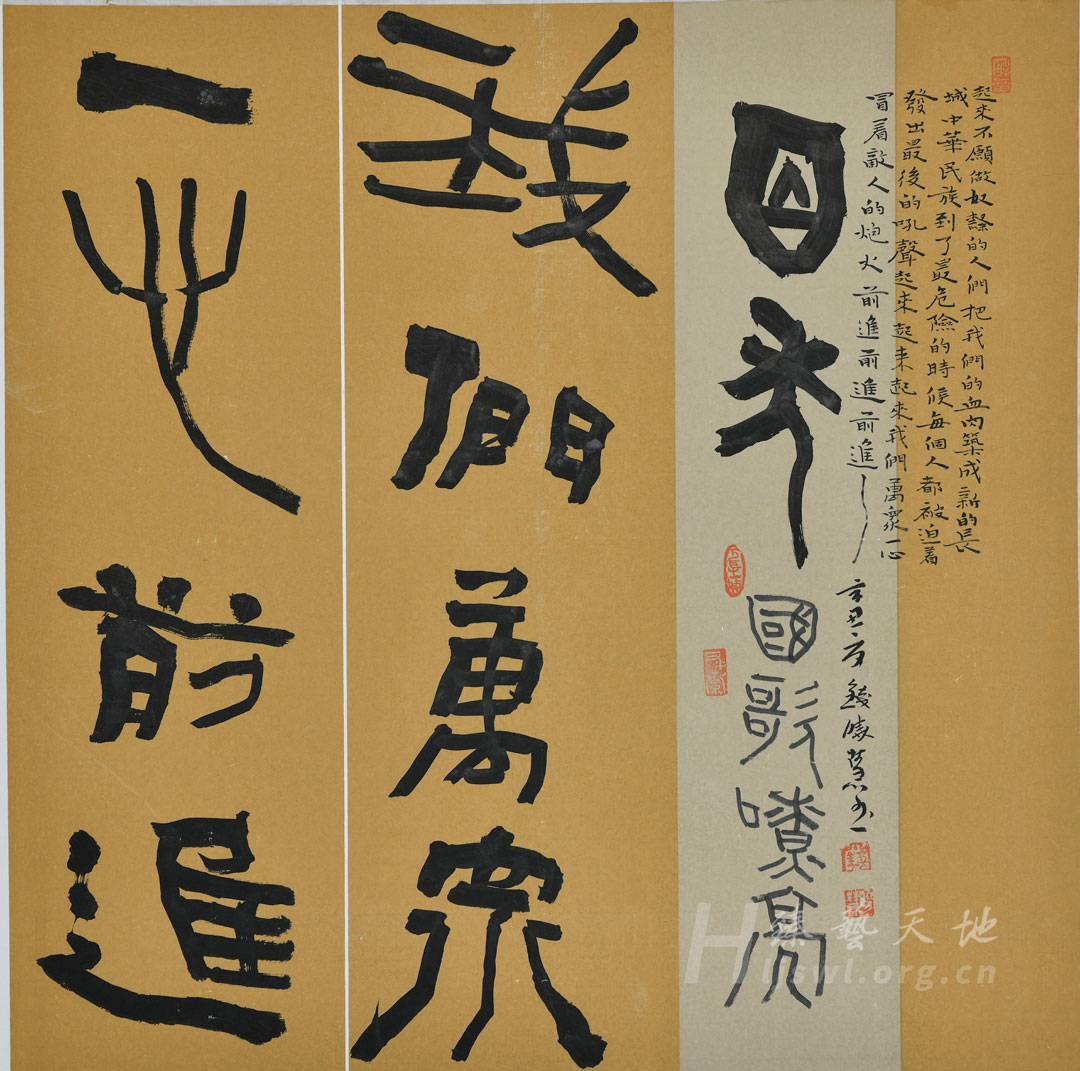 起来不願做奴隸的人們把我們的血肉築成新的長
城中華民族到了最危險的時候每個人都被迫着
發出最後的吼聲起来起来起來我們萬衆一心
冒着敵人的炮火前進前進前進
辛丑
國歌嘹亮
我們萬衆
一心前進
藝天地